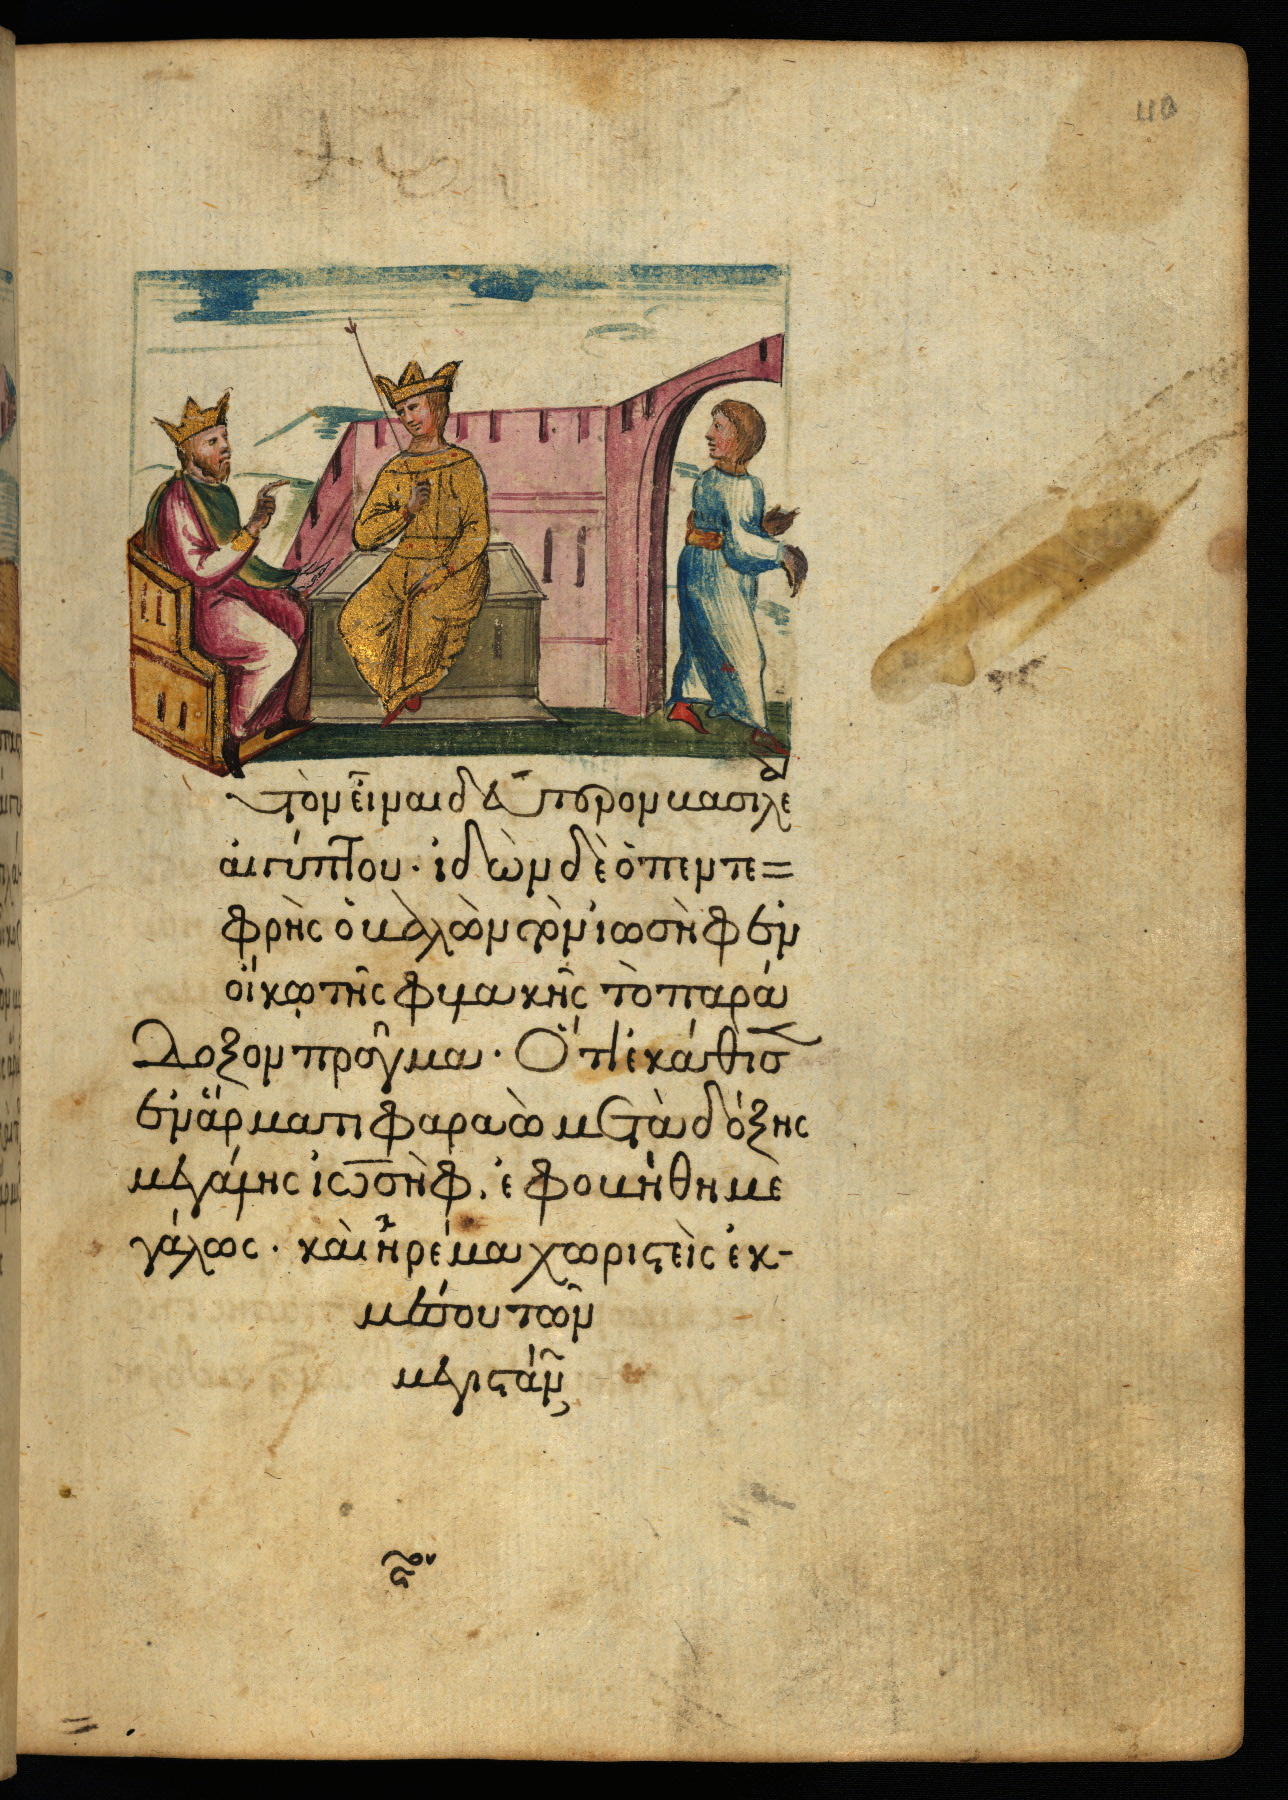 110
τὸν εἶναι δεύτερον βασιλέα
αἰγύπτου· ἰδὼν δὲ ὁ πεντε=
φρὴς ὁ βαλὼν τὸν ἰωσὴφ ἐν
οἴκω τῆς φυλακῆς τὸ παρά
δοξον πρᾶγμα· Ὅτι ἐκάθισεν
ἐν ἅρματι φαραὼ μετὰ δόξης
μεγάλης ἰωσὴφ, ἐφοβήθη με
γάλως· καὶ ἠρέμα χωρισθεὶς ἐκ-
μέσου τῶν
μεγιστάνων